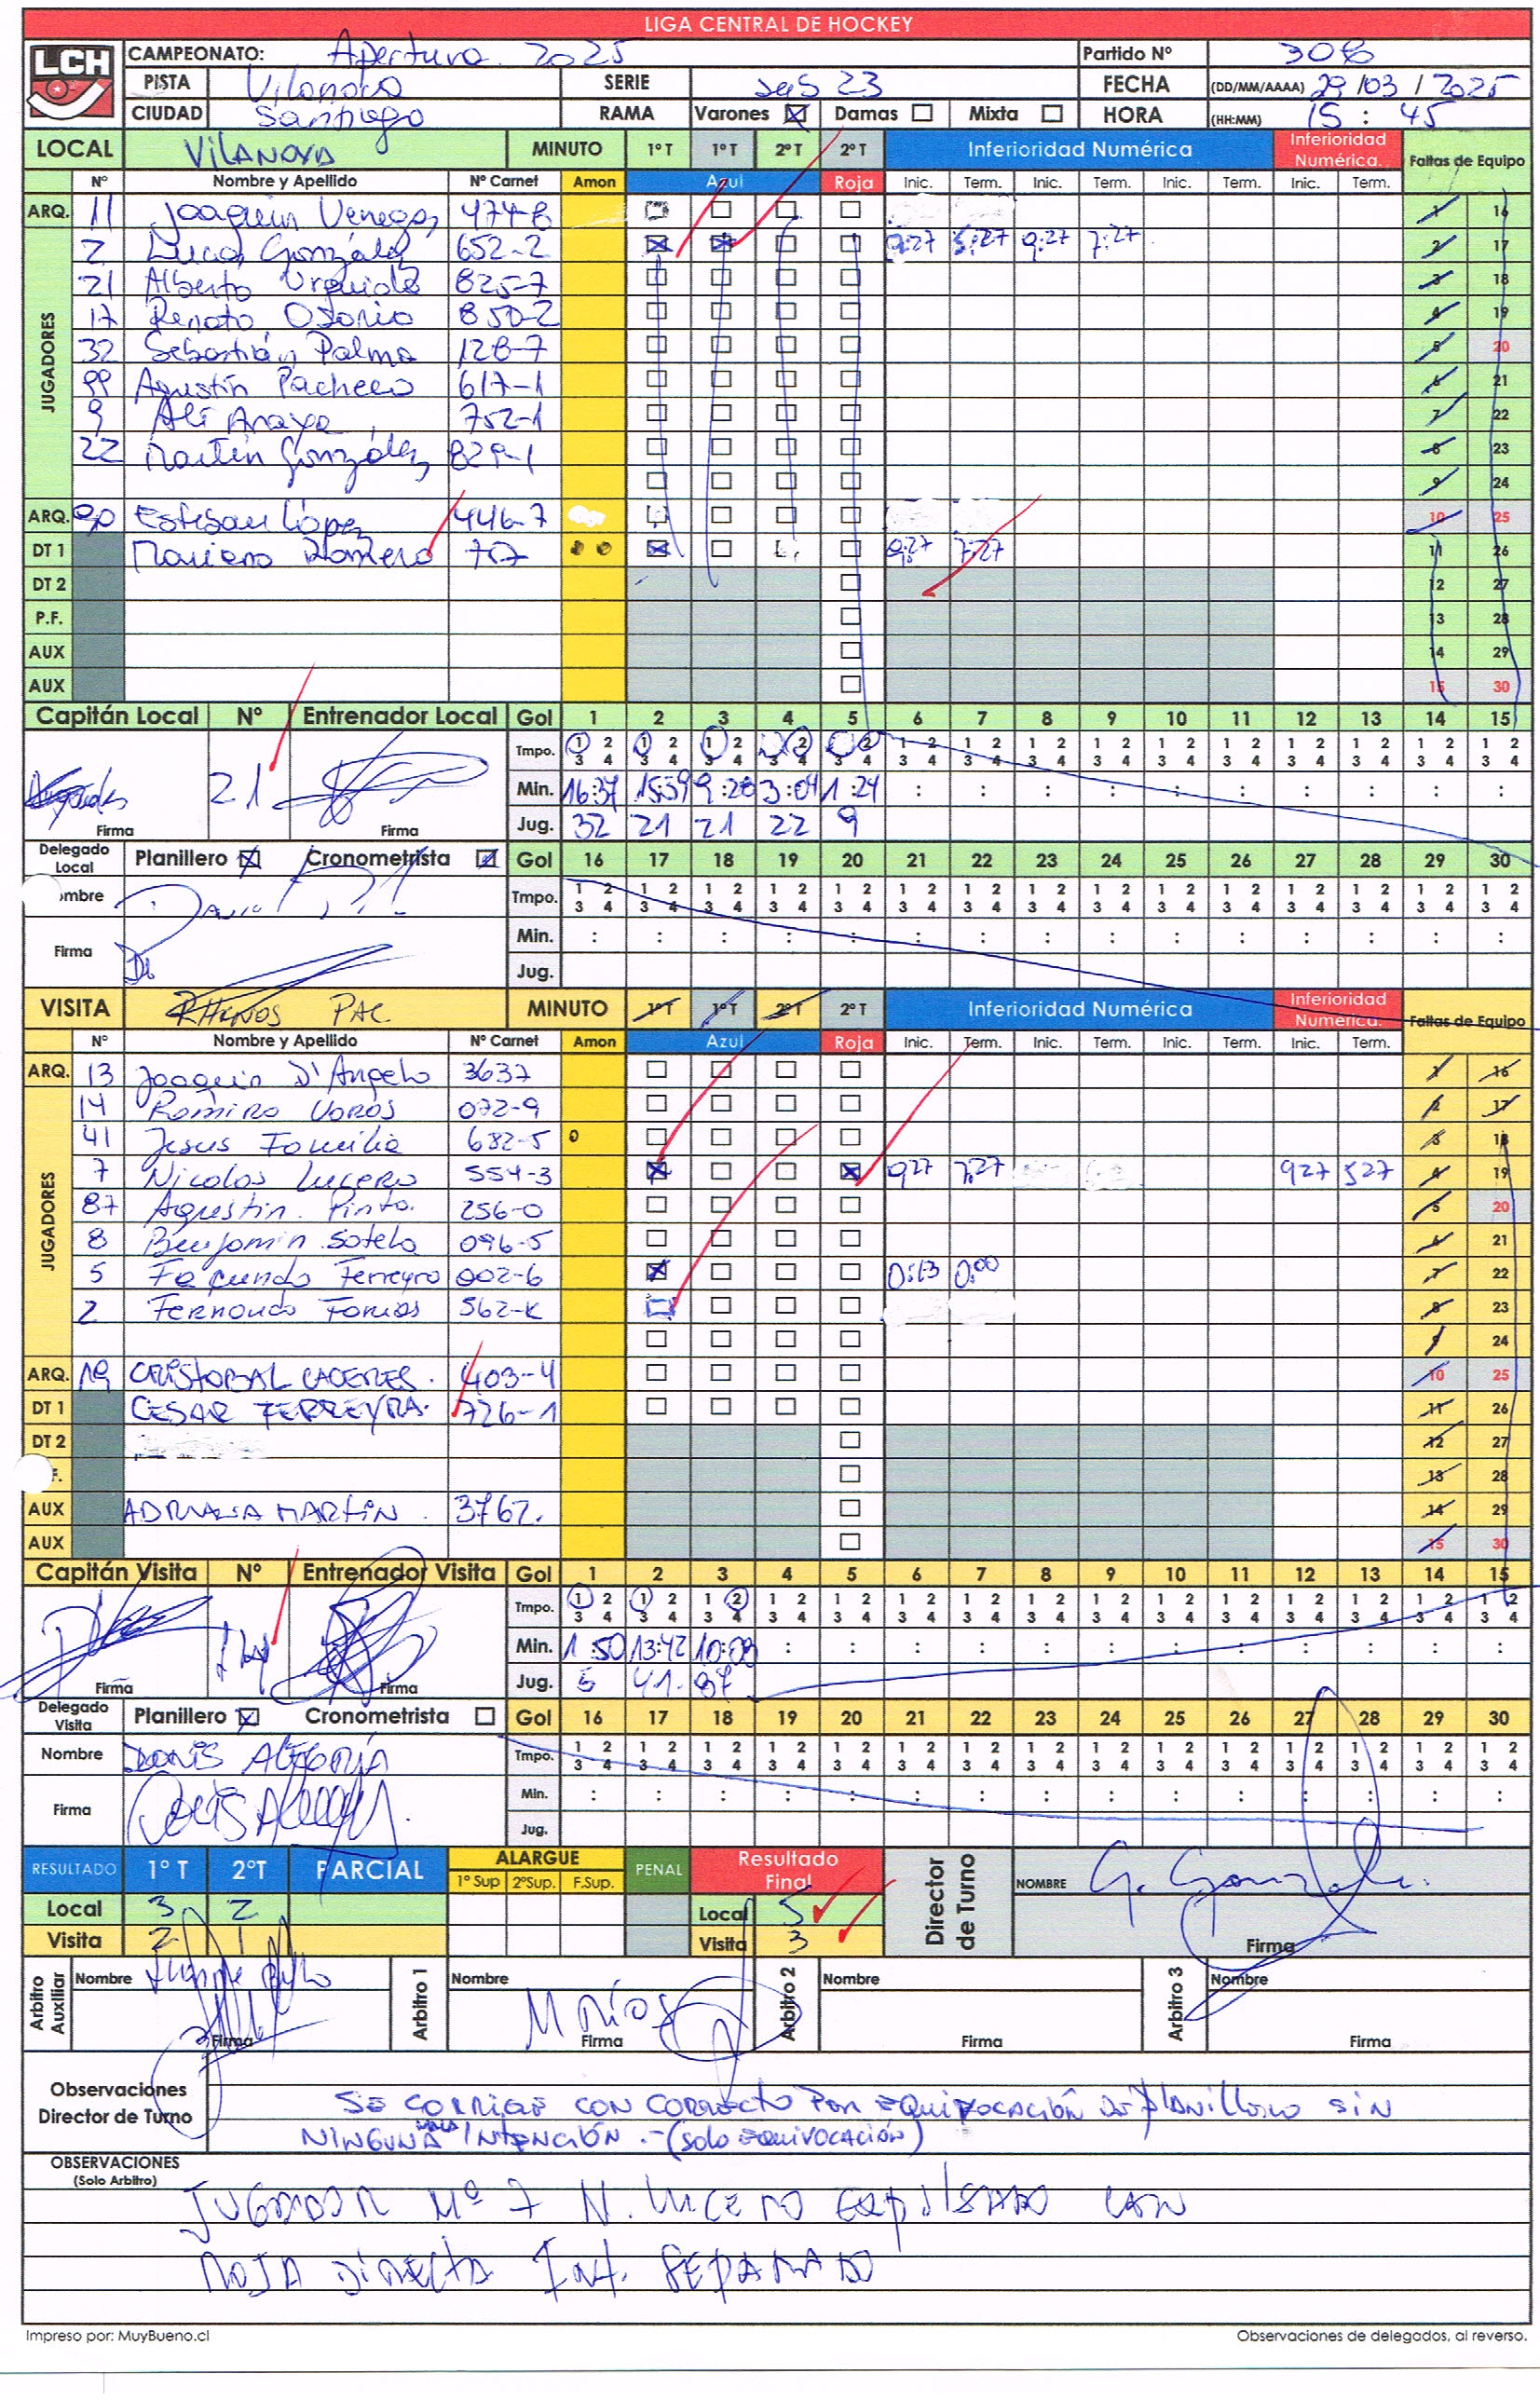 LIGA CENTRAL DE HOCKEY
LCH
CAMPEONATO: Apertura 2025 Partido Nº 306
PISTA Vilanova SERIE Sub 23 FECHA (DD/MM/AAAA) 29 /03 / 2025
CIUDAD Santiago RAMA Varones Damas Mixta HORA (HH:MM) 15 : 45
LOCAL VILANOVA MINUTO 1º T 1º T 2º T 2º T Inferioridad Numérica Inferioridad Numérica. Faltas de Equipo
Nº Nombre y Apellido Nº Carnet Amon Azul Roja Inic. Term. Inic. Term. Inic. Term. Inic. Term.
ARQ. 11 Joaquin Venegas 474-8 1 16
JUGADORES
2 Lucas González 652-2 9:27 5:27 9:27 7:27 2 17
21 Alberto Urquida 825-7 3 18
17 Renato Osorio 850-2 4 19
32 Sebastián Palma 128-7 5 20
99 Agustín Pacheco 617-1 6 21
9 Alí Araya 752-1 7 22
22 Martín González 829-1 8 23
9 24
ARQ. 90 Esteban López 446-7 10 25
DT 1 Mariano Romero 707 9:27 7:27 11 26
DT 2 12 27
P.F. 13 28
AUX 14 29
AUX 15 30
Capitán Local Nº Entrenador Local Gol 1 2 3 4 5 6 7 8 9 10 11 12 13 14 15
Tmpo. 1 2 3 4 1 2 3 4 1 2 3 4 1 2 3 4 1 2 3 4 1 2 3 4 1 2 3 4 1 2 3 4 1 2 3 4 1 2 3 4 1 2 3 4 1 2 3 4 1 2 3 4 1 2 3 4 1 2 3 4
21 Min. 16:37 15:59 9:28 3:04 1:24 : : : : : : : : : :
Firma Firma Jug. 32 21 21 22 9
Delegado Local Planillero Cronometrista Gol 16 17 18 19 20 21 22 23 24 25 26 27 28 29 30
ombre Tmpo. 1 2 3 4 1 2 3 4 1 2 3 4 1 2 3 4 1 2 3 4 1 2 3 4 1 2 3 4 1 2 3 4 1 2 3 4 1 2 3 4 1 2 3 4 1 2 3 4 1 2 3 4 1 2 3 4 1 2 3 4
Firma Min. : : : : : : : : : : : : : : :
Jug.
VISITA RHINOS PAC MINUTO 1º T 1º T 2º T 2º T Inferioridad Numérica Inferioridad Numérica. Faltas de Equipo
Nº Nombre y Apellido Nº Carnet Amon Azul Roja Inic. Term. Inic. Term. Inic. Term. Inic. Term.
ARQ. 13 Joaquin D'Angelo 3637 1 16
JUGADORES
14 Romiro Voros 072-9 2 17
41 Jesus Familia 682-5 3 18
7 Nicolas Lucero 554-3 9:27 7:27 9:27 5:27 4 19
87 Agustin Pinto. 256-0 5 20
8 Benjamin Sotelo 096-5 6 21
5 Facundo Ferreyro 002-6 0:13 0:00 7 22
2 Fernando Tomas 562-K 8 23
9 24
ARQ. 19 CRISTOBAL CACERES. 403-4 10 25
DT 1 CESAR FERREYRA. 726-1 11 26
DT 2 12 27
F. 13 28
AUX ADRIANA MARTIN. 3762. 14 29
AUX 15 30
Capitán Visita Nº Entrenador Visita Gol 1 2 3 4 5 6 7 8 9 10 11 12 13 14 15
Tmpo. 1 2 3 4 1 2 3 4 1 2 3 4 1 2 3 4 1 2 3 4 1 2 3 4 1 2 3 4 1 2 3 4 1 2 3 4 1 2 3 4 1 2 3 4 1 2 3 4 1 2 3 4 1 2 3 4 1 2 3 4
14 Min. 1:50 13:42 10:09 : : : : : : : : : : : :
Firma Firma Jug. 5 41. 87
Delegado Visita Planillero Cronometrista Gol 16 17 18 19 20 21 22 23 24 25 26 27 28 29 30
Nombre DENIS ALEGRÍA Tmpo. 1 2 3 4 1 2 3 4 1 2 3 4 1 2 3 4 1 2 3 4 1 2 3 4 1 2 3 4 1 2 3 4 1 2 3 4 1 2 3 4 1 2 3 4 1 2 3 4 1 2 3 4 1 2 3 4 1 2 3 4
Firma Min. : : : : : : : : : : : : : : :
Jug.
RESULTADO 1º T 2ºT PARCIAL ALARGUE 1º Sup 2ºSup. F.Sup. PENAL Resultado Final Director de Turno NOMBRE G. González
Local 3 2 Local 5
Visita 2 1 Visita 3 Firma
Arbitro Auxiliar Nombre Firma Arbitro 1 Nombre M Ríos Firma Arbitro 2 Nombre Firma Arbitro 3 Nombre Firma
Observaciones Director de Turno
SE CORRIGE CON CORRECTO POR EQUIVOCACIÓN DE PLANILLERO SIN
NINGUNA MALA INTENCIÓN.-(SOLO EQUIVOCACIÓN)
OBSERVACIONES (Solo Arbitro)
JUGADOR Nº 7 N. LUCERO EXPULSADO CON
ROJA DIRECTA Inf. SEPARADO
Impreso por: MuyBueno.cl Observaciones de delegados, al reverso.